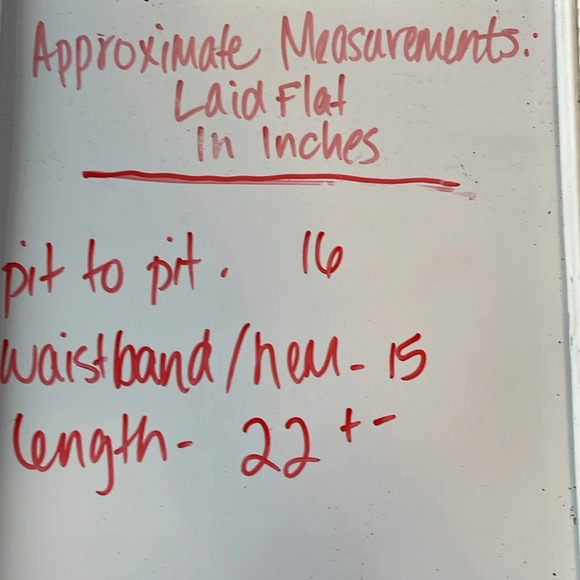 Approximate Measurements:
Laid Flat
In Inches
pit to pit. 16
waistband/hem- 15
length- 22 +-